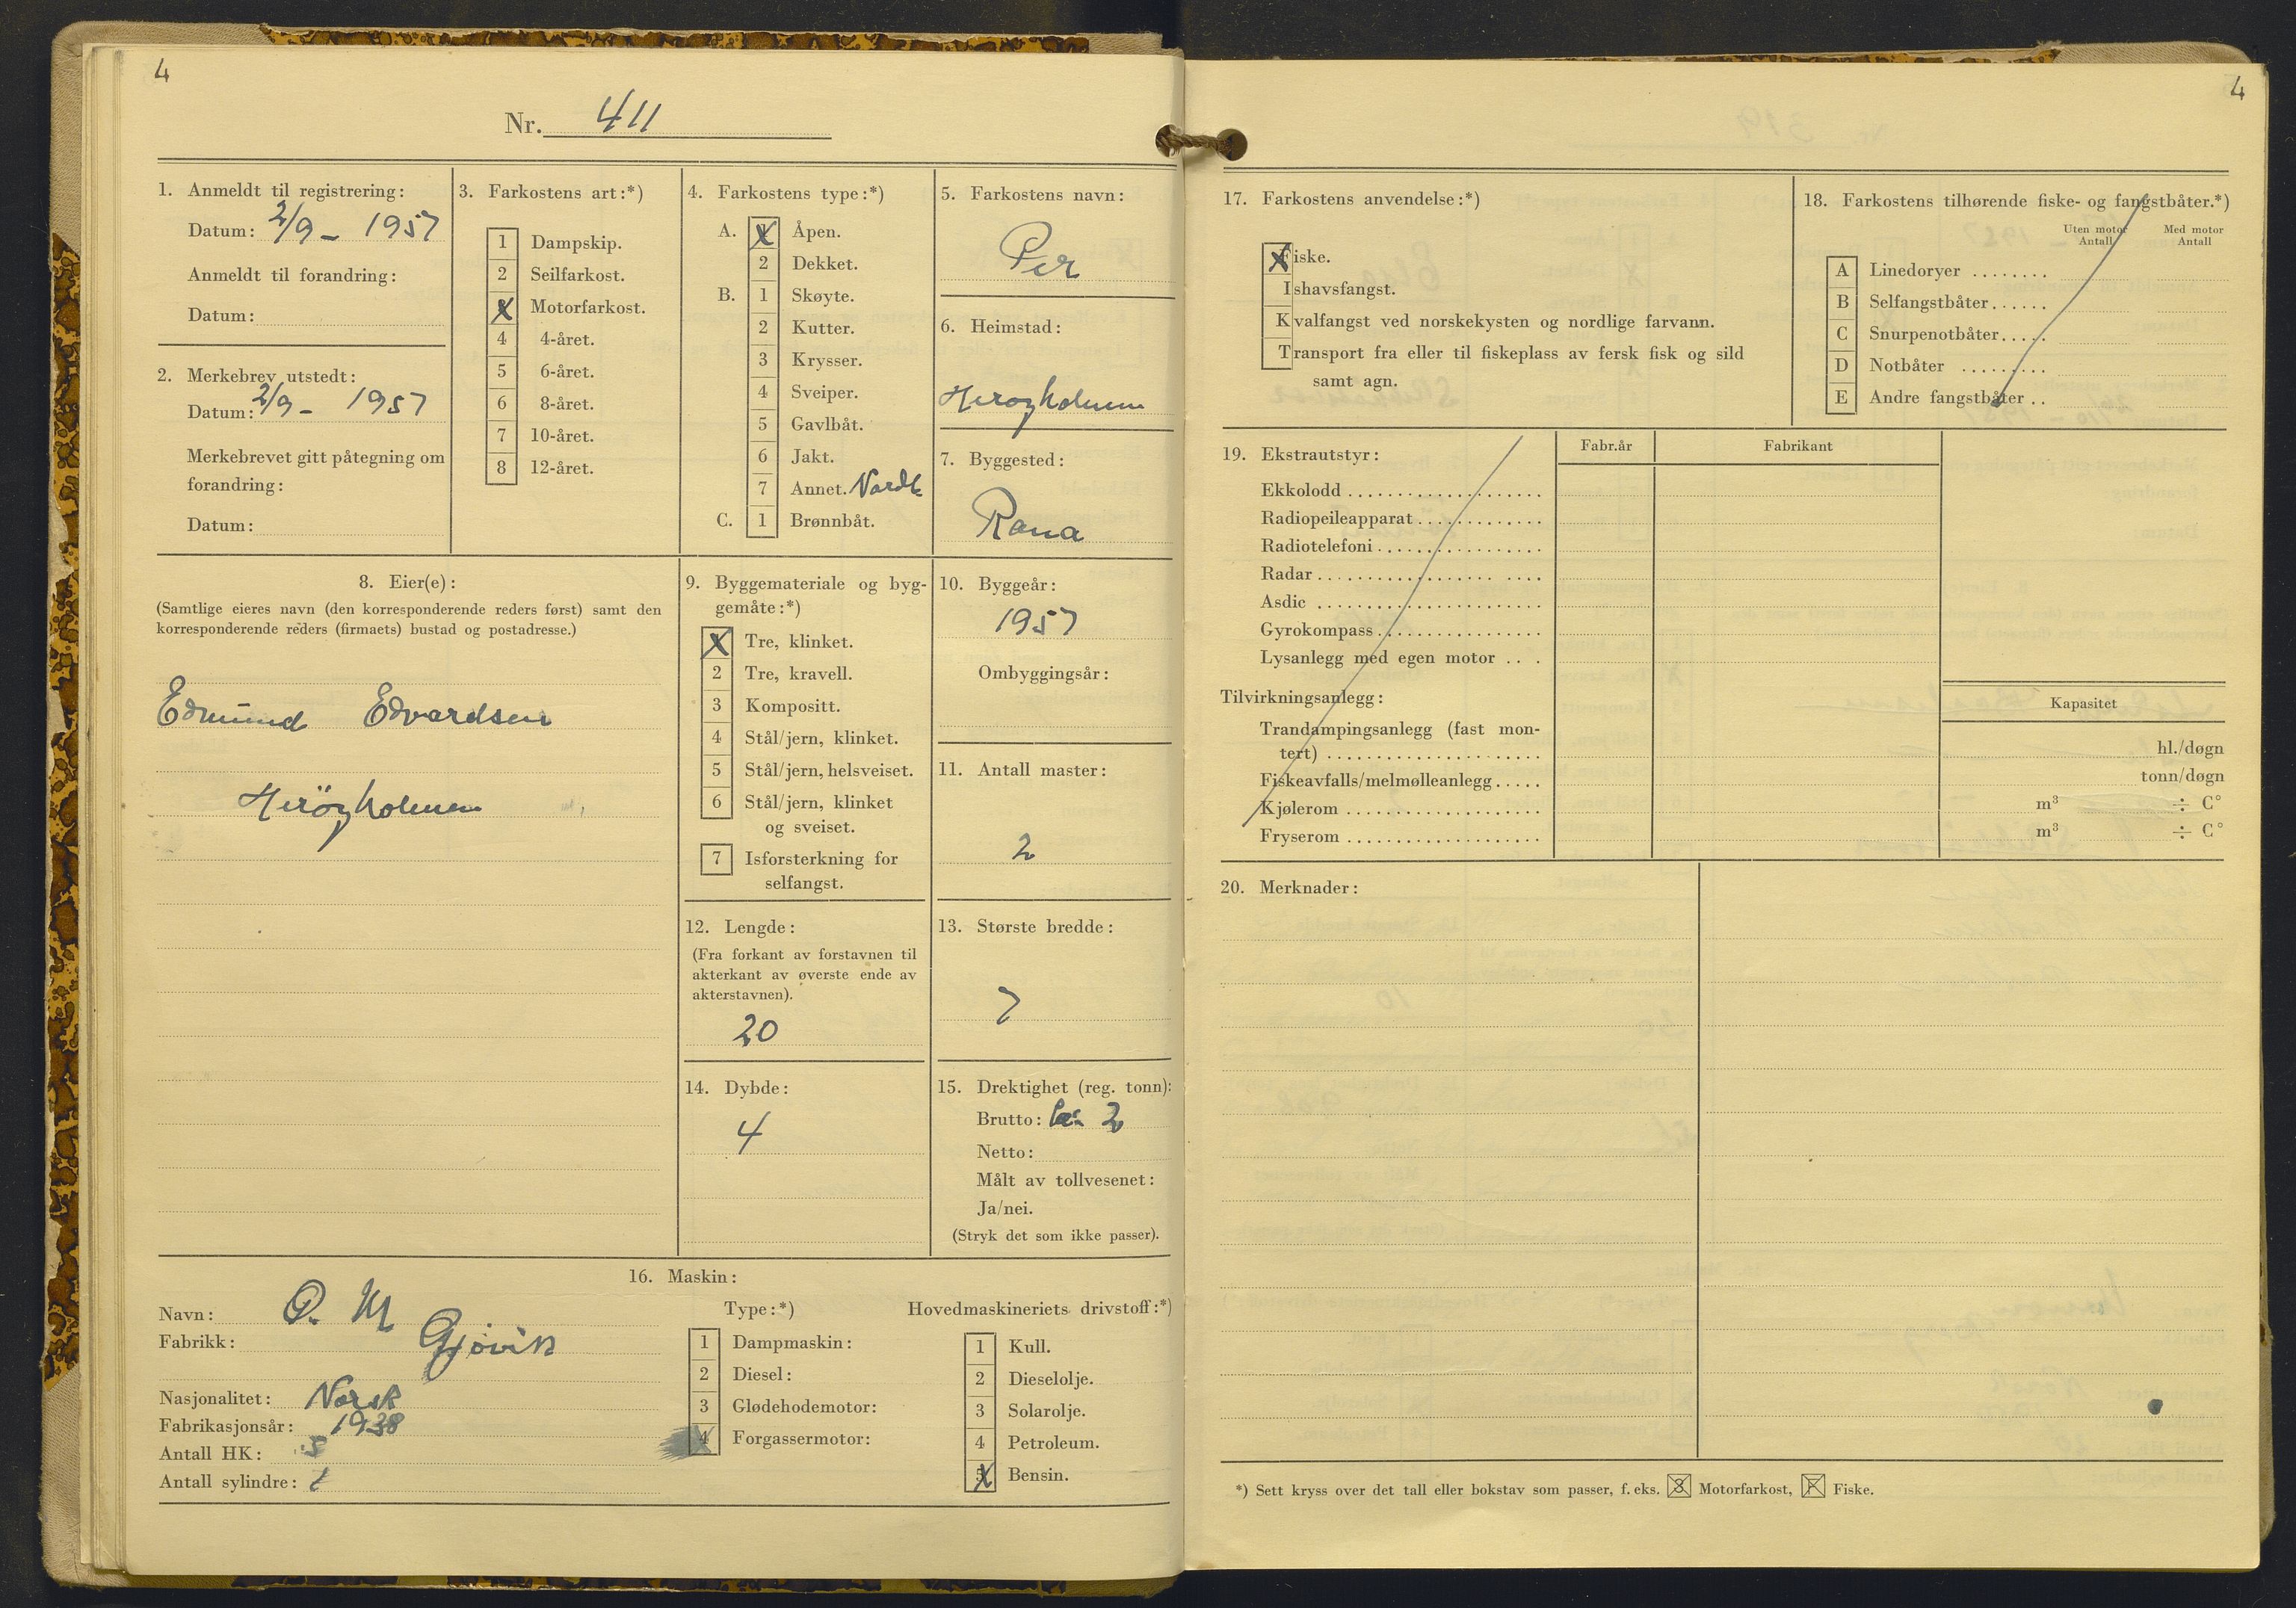 4
Nr. 411
1. Anmeldt til registrering:
Datum: 2/9 - 1957
Anmeldt til forandring:
Datum:
2. Merkebrev utstedt:
Datum: 2/9 - 1957
Merkebrevet gitt påtegning om
forandring:
Datum:
3. Farkostens art:*)
1 Dampskip.
2 Seilfarkost.
X Motorfarkost.
4 4-året.
5 6-året.
6 8-året.
7 10-året.
8 12-året.
4. Farkostens type:*)
A. X Åpen.
2 Dekket.
B. 1 Skøyte.
2 Kutter.
3 Krysser.
4 Sveiper.
5 Gavlbåt.
6 Jakt.
7 Annet. Nordl
C. 1 Brønnbåt.
5. Farkostens navn:
Per
6. Heimstad:
Herøyholmen
7. Byggested:
Rana
8. Eier(e):
(Samtlige eieres navn (den korresponderende reders først) samt den
korresponderende reders (firmaets) bustad og postadresse.)
Edmund Edvardsen
Heröyholmen
9. Byggemateriale og byg-
gemåte:*)
X Tre, klinket.
2 Tre, kravell.
3 Kompositt.
4 Stål/jern, klinket.
5 Stål/jern, helsveiset.
6 Stål/jern, klinket
og sveiset.
7 Isforsterkning for
selfangst.
10. Byggeår:
1957
Ombyggingsår:
11. Antall master:
2
12. Lengde:
(Fra forkant av forstavnen til
akterkant av øverste ende av
akterstavnen).
20
13. Største bredde:
7
14. Dybde:
4
15. Drektighet (reg. tonn):
Brutto: ca. 2
Netto:
Målt av tollvesenet:
Ja/nei.
(Stryk det som ikke passer).
16. Maskin:
Navn: O. M
Fabrikk: Gjøvik
Nasjonalitet: Norsk
Fabrikasjonsår: 1938
Antall HK: 5
Antall sylindre:
Type:*)
1 Dampmaskin:
2 Diesel:
3 Glødehodemotor:
4 Forgassermotor:
Hovedmaskineriets drivstoff:*)
1 Kull.
2 Dieselolje.
3 Solarolje.
4 Petroleum.
X Bensin.
4
17. Farkostens anvendelse:*)
Fiske.
Ishavsfangst.
Kvalfangst ved norskekysten og nordlige farvann.
Transport fra eller til fiskeplass av fersk fisk og sild
samt agn.
18. Farkostens tilhørende fiske- og fangstbåter.*)
Uten motor Med motor
Antall Antall
A Linedoryer ........
B Selfangstbåter ......
C Snurpenotbåter .....
D Notbåter .........
E Andre fangstbåter ..
19. Ekstrautstyr:
Fabr.år Fabrikant
Ekkolodd ....................
Radiopeileapparat .............
Radiotelefoni .................
Radar ..................... ....
Asdic .......................
Gyrokompass .................
Lysanlegg med egen motor .. .
Tilvirkningsanlegg:
Kapasitet
Trandampingsanlegg (fast mon-
tert) ...................... hl./døgn
Fiskeavfalls/melmølleanlegg ..... tonn/døgn
Kjølerom .................... m³ ÷ C°
Fryserom .................... m³ ÷ C°
20. Merknader:
*) Sett kryss over det tall eller bokstav som passer, f. eks. 3 Motorfarkost, F Fiske.